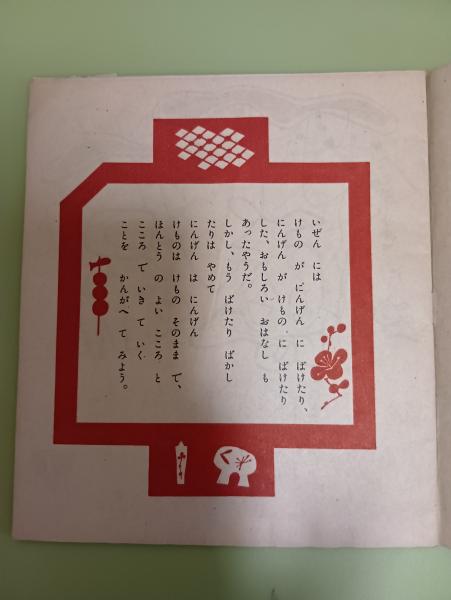 いぜん には
けもの が にんげん に ばけたり、
にんげん が けもの に ばけたり
した、おもしろい おはなし も
あったやうだ。
しかし、もう ばけたり ばかし
たりは やめて
にんげん は にんげん
けものは けもの そのまま で、
ほんとう の よい こころ と
こころ で いき て いく
ことを かんがへ て みよう。